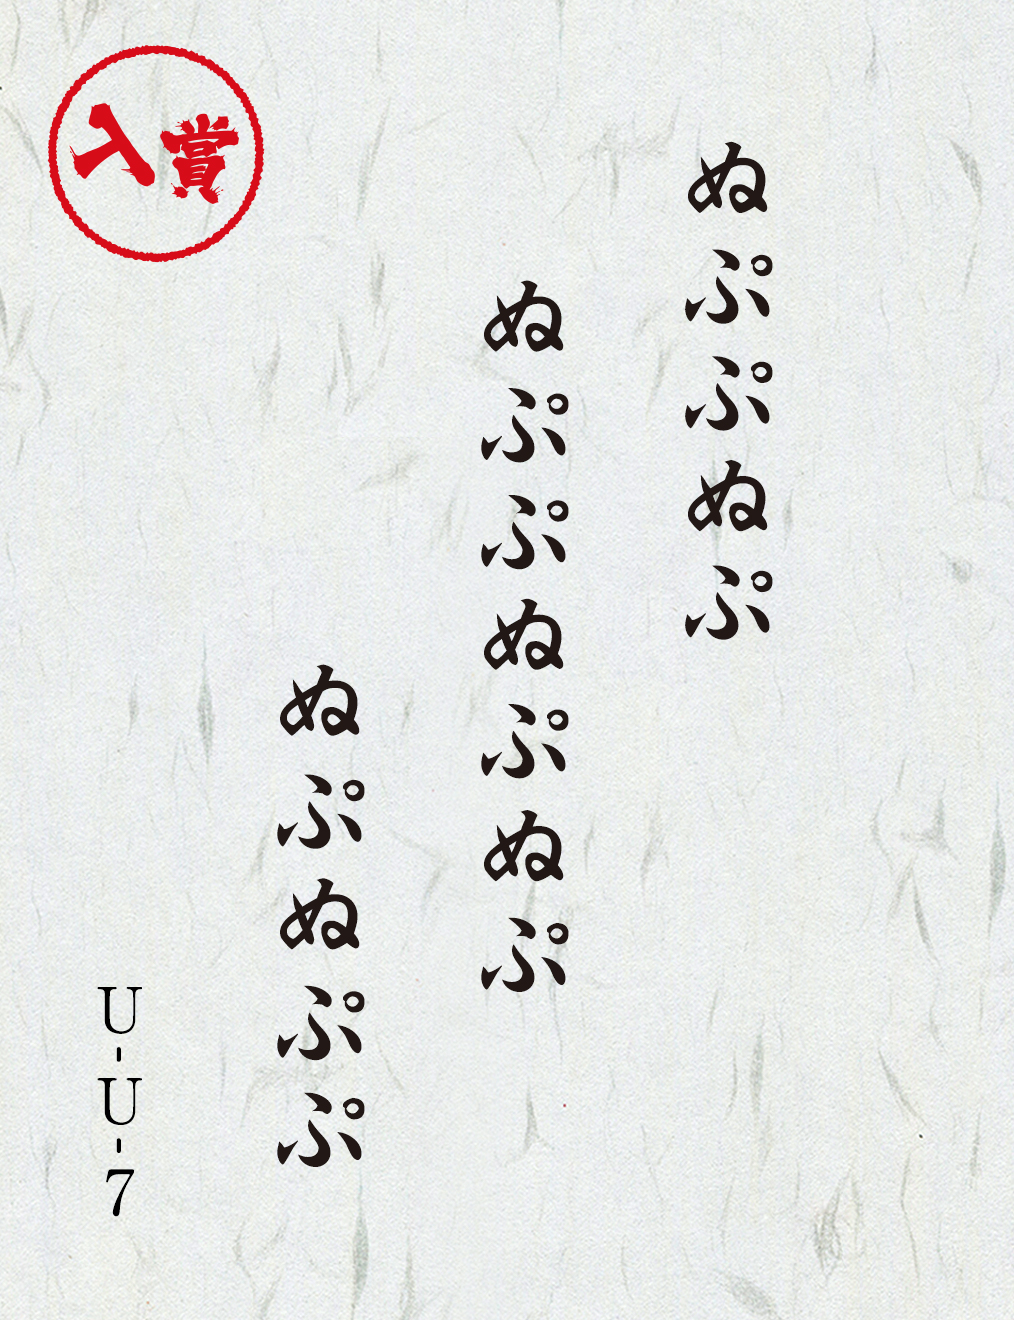 ぬぷぷぬぷ
ぬぷぷぬぷぬぷ
ぬぷぬぷぷ
U-U-7
入賞